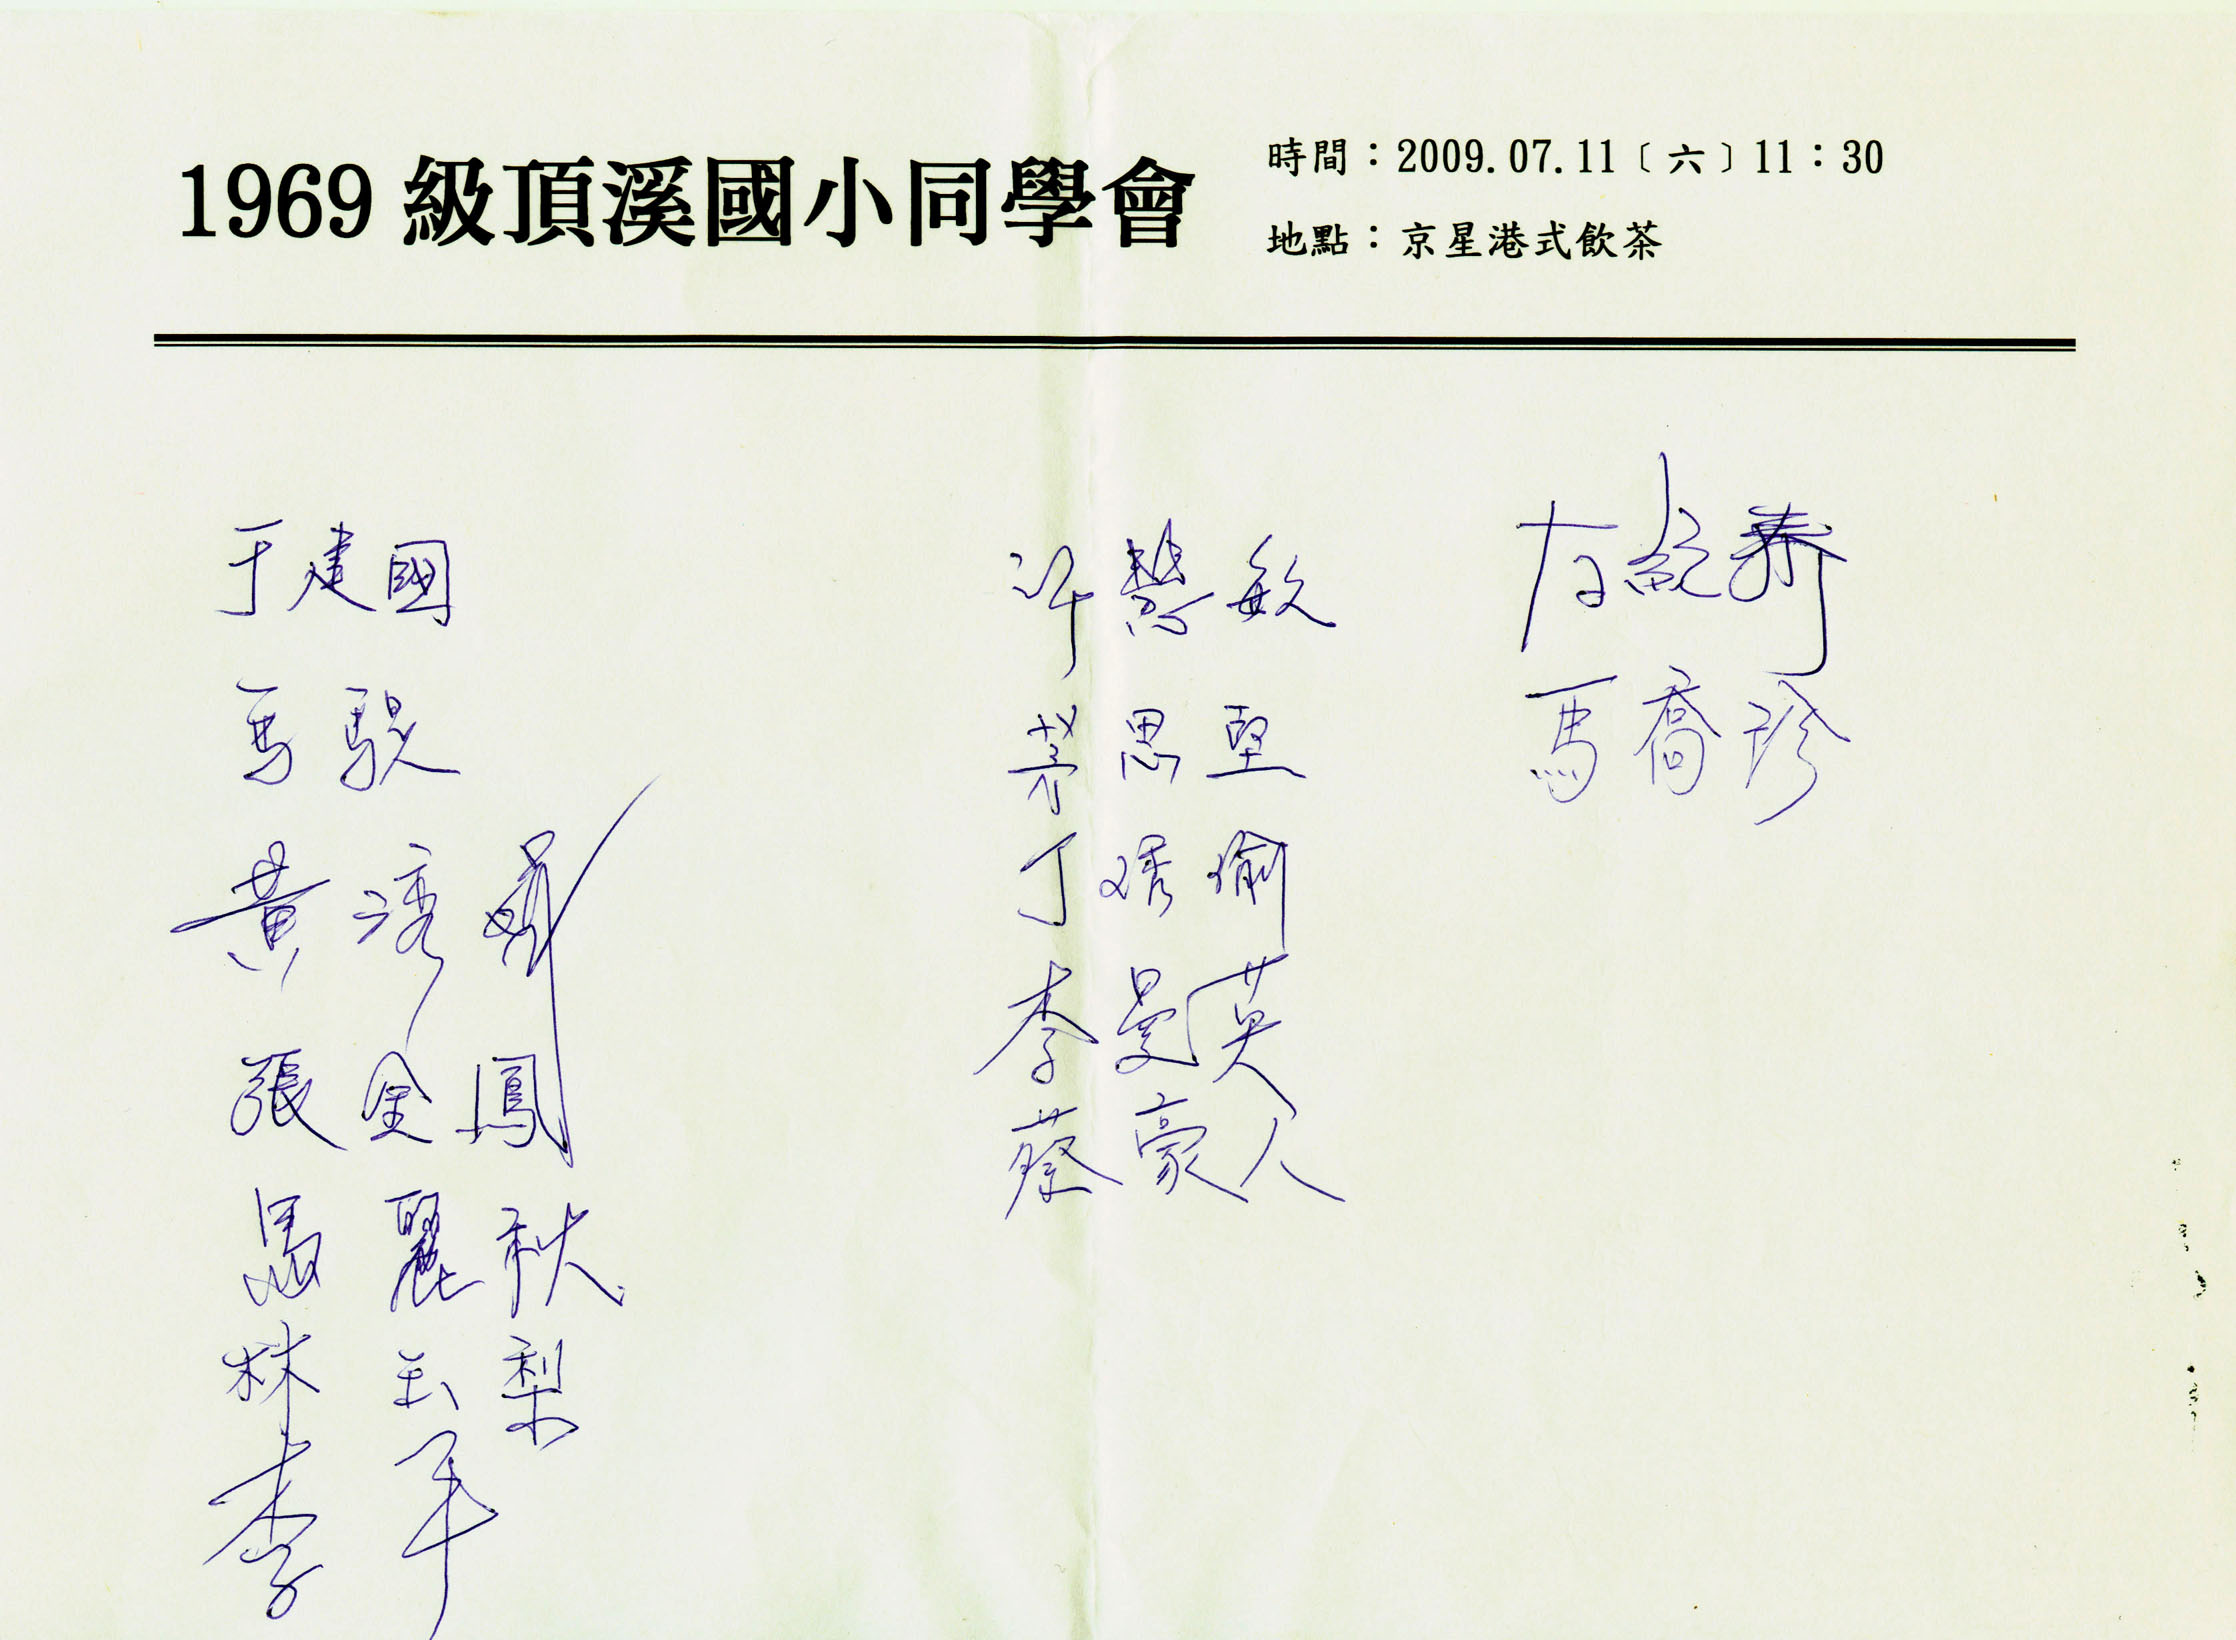 1969 級頂溪國小同學會
時間：2009.07.11﹝六﹞11：30
地點：京星港式飲茶
于建國
馬騉
黃
張金鳳
馬麗秋
林玉梨
李平
許慧敏
茅思堅
丁琇瑜
李曼英
蔡豪人
左
馬喬珍